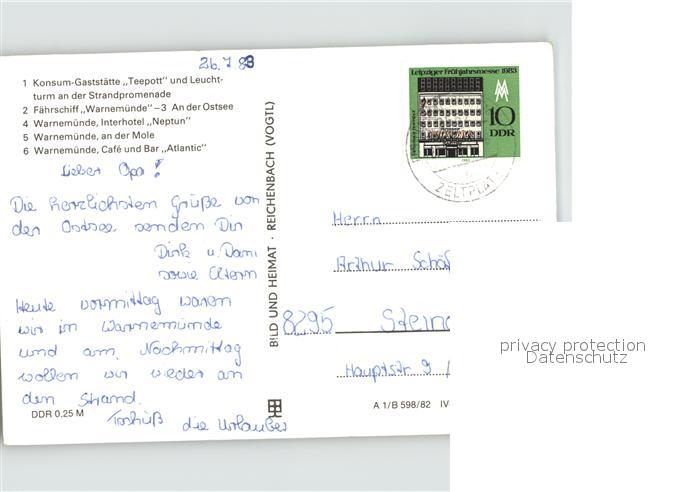 26.7.83
1 Konsum-Gaststätte „Teepott" und Leucht-
turm an der Strandpromenade
2 Fährschiff „Warnemünde"–3 An der Ostsee
4 Warnemünde, Interhotel „Neptun"
5 Warnemünde, an der Mole
6 Warnemünde, Café und Bar „Atlantic"
Lieber Opa!
Die herzlichsten Grüße von
der Ostsee senden Dir
Dirk u. Dani
sowie Eltern
Heute vormittag waren
wir in Warnemünde
und am Nachmittag
wollen wir wieder an
den Strand.
Tschüß die Urlauber
DDR 0,25 M
BILD UND HEIMAT · REICHENBACH (VOGTL)
Leipziger Frühjahrsmesse 1983
10
DDR
ZELTPLATZ
Herrn
Arthur Schö
8295 Stein
Hauptstr 9
A 1/B 598/82 IV
privacy protection
Datenschutz